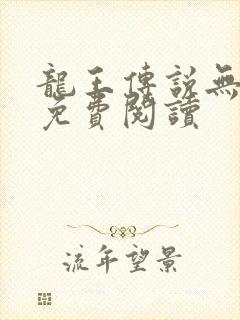 龍王傳説無
免費閱讀
流年望景